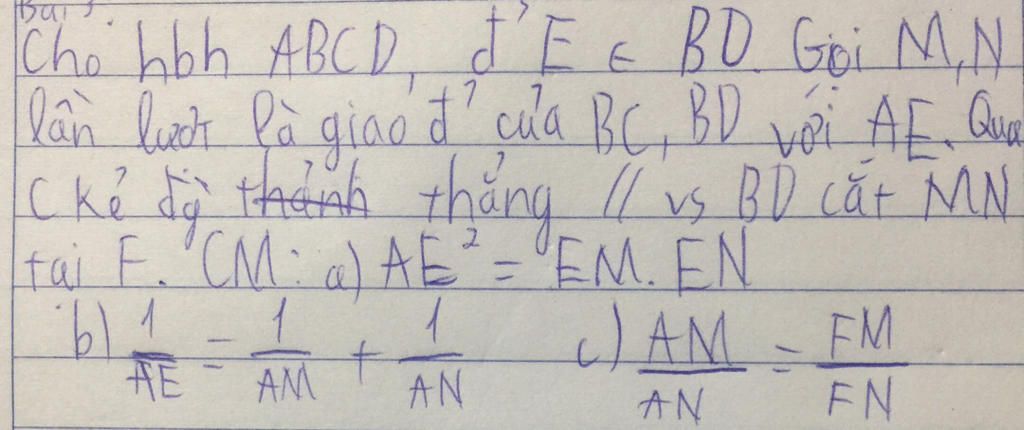 Bài 3.
Cho hbh ABCD, đ' E ∈ BD. Gọi M, N
lần lượt là giao đ' của BC, BD với AE. Qua
C kẻ đg thẳng // vs BD cắt MN
tại F. CM: a) AE² = EM. EN
b) 1/AE = 1/AM + 1/AN c) AM/AN = FM/FN